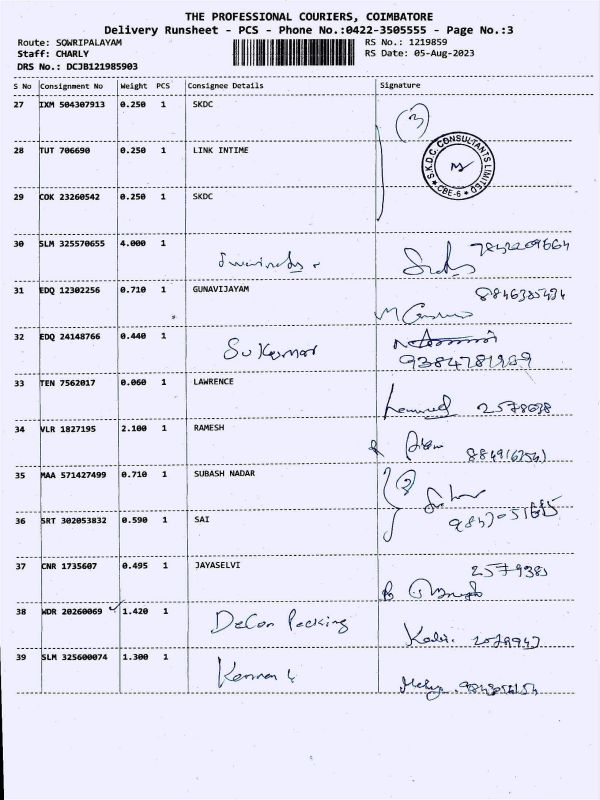 THE PROFESSIONAL COURIERS, COIMBATORE
Delivery Runsheet - PCS - Phone No.:0422-3505555 - Page No.:3
Route: SOWRIPALAYAM
RS No.: 1219859
Staff: CHARLY
RS Date: 05-Aug-2023
DRS No.: DCJB121985903
S No Consignment No Weight PCS Consignee Details Signature
27 IXM 504307913 0.250 1 SKDC
3
28 TUT 706690 0.250 1 LINK INTIME
S.K.D.C. CONSULTANTS LIMITED * CBE-6 *
29 COK 23260542 0.250 1 SKDC
30 SLM 325570655 4.000 1
31 EDQ 12302256 0.710 1 GUNAVIJAYAM
32 EDQ 24148766 0.440 1 Sukumar
33 TEN 7562017 0.060 1 LAWRENCE
34 VLR 1827195 2.100 1 RAMESH
35 MAA 571427499 0.710 1 SUBASH NADAR
2
36 SRT 302053832 0.590 1 SAI
37 CNR 1735607 0.495 1 JAYASELVI
38 WDR 20260069 1.420 1 DeCon Packing
39 SLM 325600074 1.300 1